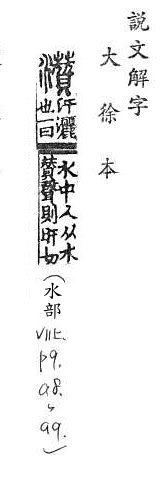 說文解字
大徐本
灒
汙灑
也一曰
水中人从水
贊聲則旰切
(水部
VII上.
p9.
a8.
、
a9.)